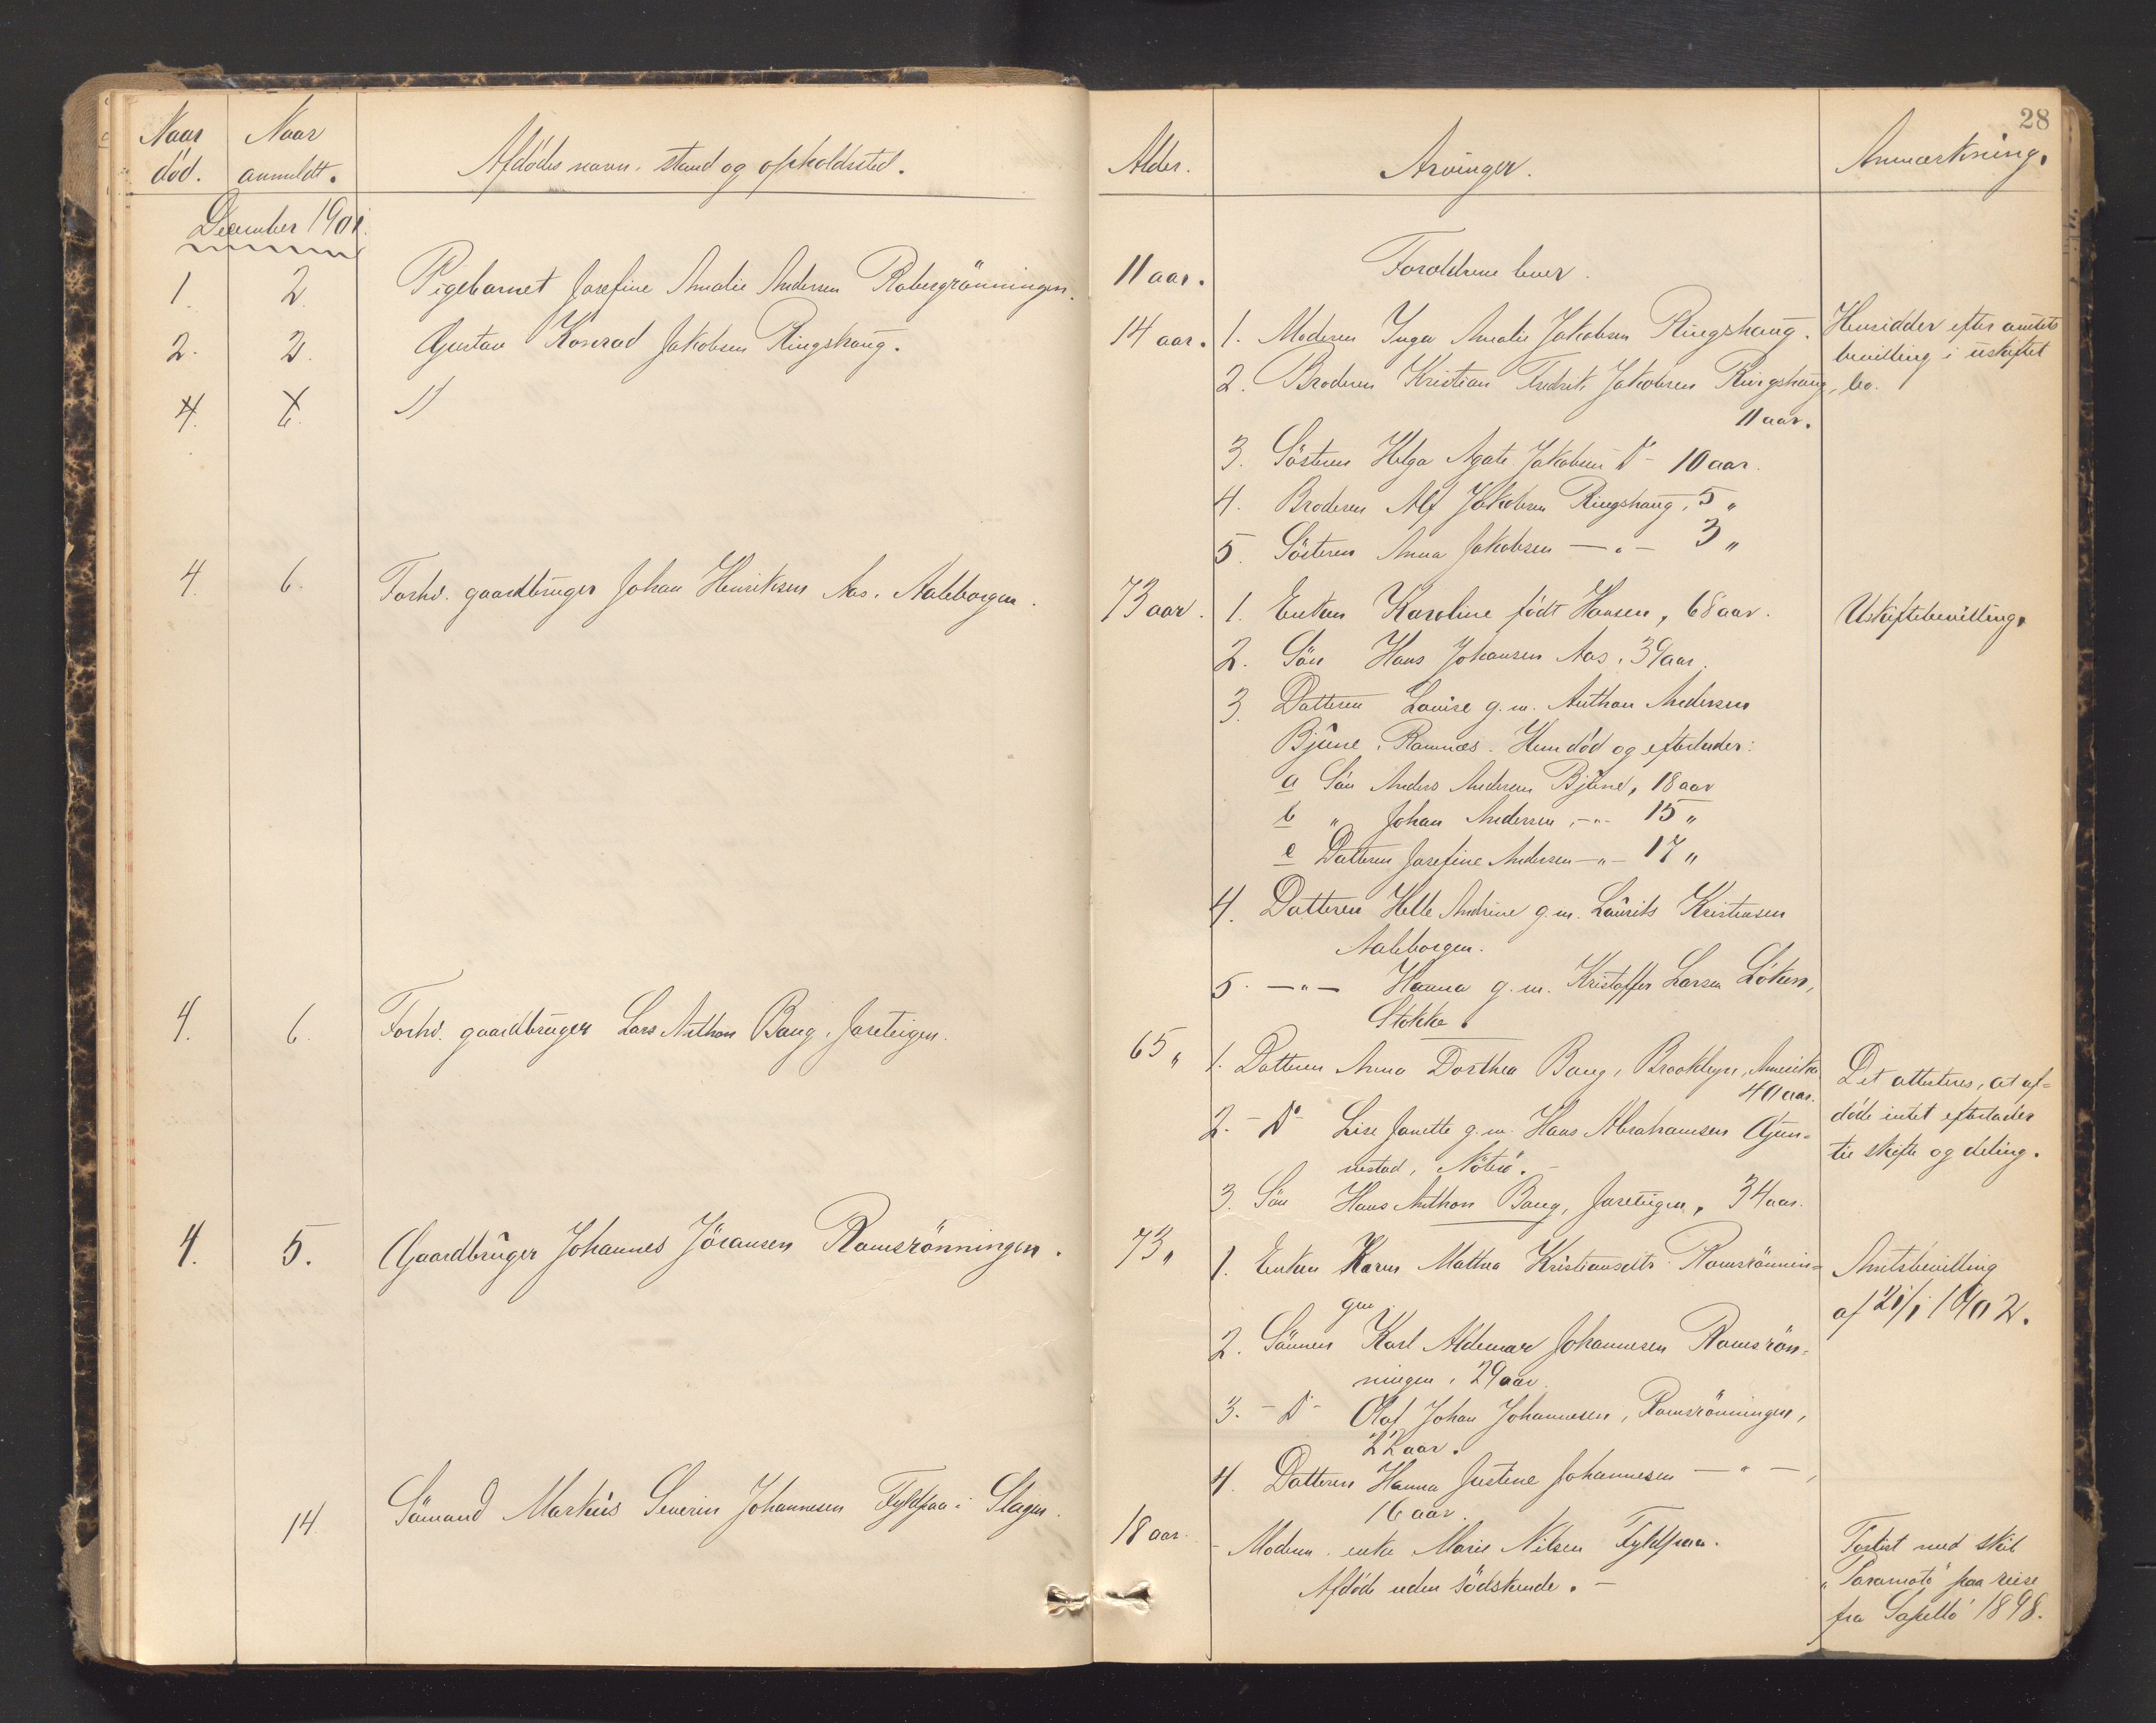 28
Naar død. Naar anmeldt. Afdødes navn, stand og opholdssted. Alder. Arvinger. Anmærkning.
December 1901.
1. 2. Pigebarnet Josefine Amalie Andersen Rabergrönningen. 11 aar. Forældrene lever.
2. 3. Gustav Konrad Jakobsen Ringshaug. 14 aar. 1. Moderen Inga Amalie Jakobsen Ringshaug. Hensidder efter amtets
bevilling i uskiftet
2. Broderen Kristian Fredrik Jakobsen Ringshaug, bo.
4.
11 aar.
3. Sösteren Helga Agate Jakobsen Do 10 aar.
4. Broderen Alf Jakobsen Ringshaug, 5 "
5. Sösteren Anna Jakobsen — " — 3 "
4. 6. Forhv. gaardbruger Johan Henriksen Aas, Aaleborgen. 73 aar. 1. Enken Karoline født Hansen, 68 aar. Uskiftebevilling.
2. Sön Hans Johansen Aas, 39 aar.
3. Datteren Lovise g. m. Anthon Andersen
Bjune, Ramnæs. Hun död og efterlader:
a Sön Anders Andersen Bjune, 18 aar
b " Johan Andersen, — " — 15 "
c Datteren Josefine Andersen — " — 17 "
4. Datteren Helle Andrine g. m. Laurits Kristensen
Aaleborgen.
5. — " — Hanna g. m. Kristoffer Larsen Löken,
Stokke.
4. 6. Forhv. gaardbruger Lars Anthon Baug, Jareteigen. 65 " 1. Datteren Anna Dorthea Baug, Brooklyn, Amerika
40 aar.
Det attesteres, at af-
døde intet efterlader
til skifte og deling.
2. - Do Lise Janette g. m. Hans Abrahamsen Gun-
nestad, Nöterö.
3. Sön Hans Anthon Baug, Jareteigen, 34 aar.
4. 5. Gaardbruger Johannes Jöransen Ramsrönningen. 73 " 1. Enken Karen Mathea Kristiansdtr Ramsrönnin-
gen.
Amtsbevilling
af 21/1 1902.
2. Sönnen Karl Aldemar Johannesen Ramsrön-
ningen, 29 aar.
3. - Do - Olaf Johan Johannesen, Ramsrönningen,
22 aar.
4. Datteren Hanna Justine Johannesen — " —,
16 aar.
14. Sömand Markus Severin Johannesen Fyldpaa i Slagen. 18 aar. - Moderen enke Marie Nilsen Fyldpaa.
Afdöde uden södskende. -
Forlist med skib
" paa reise
fra Sapello 1898.